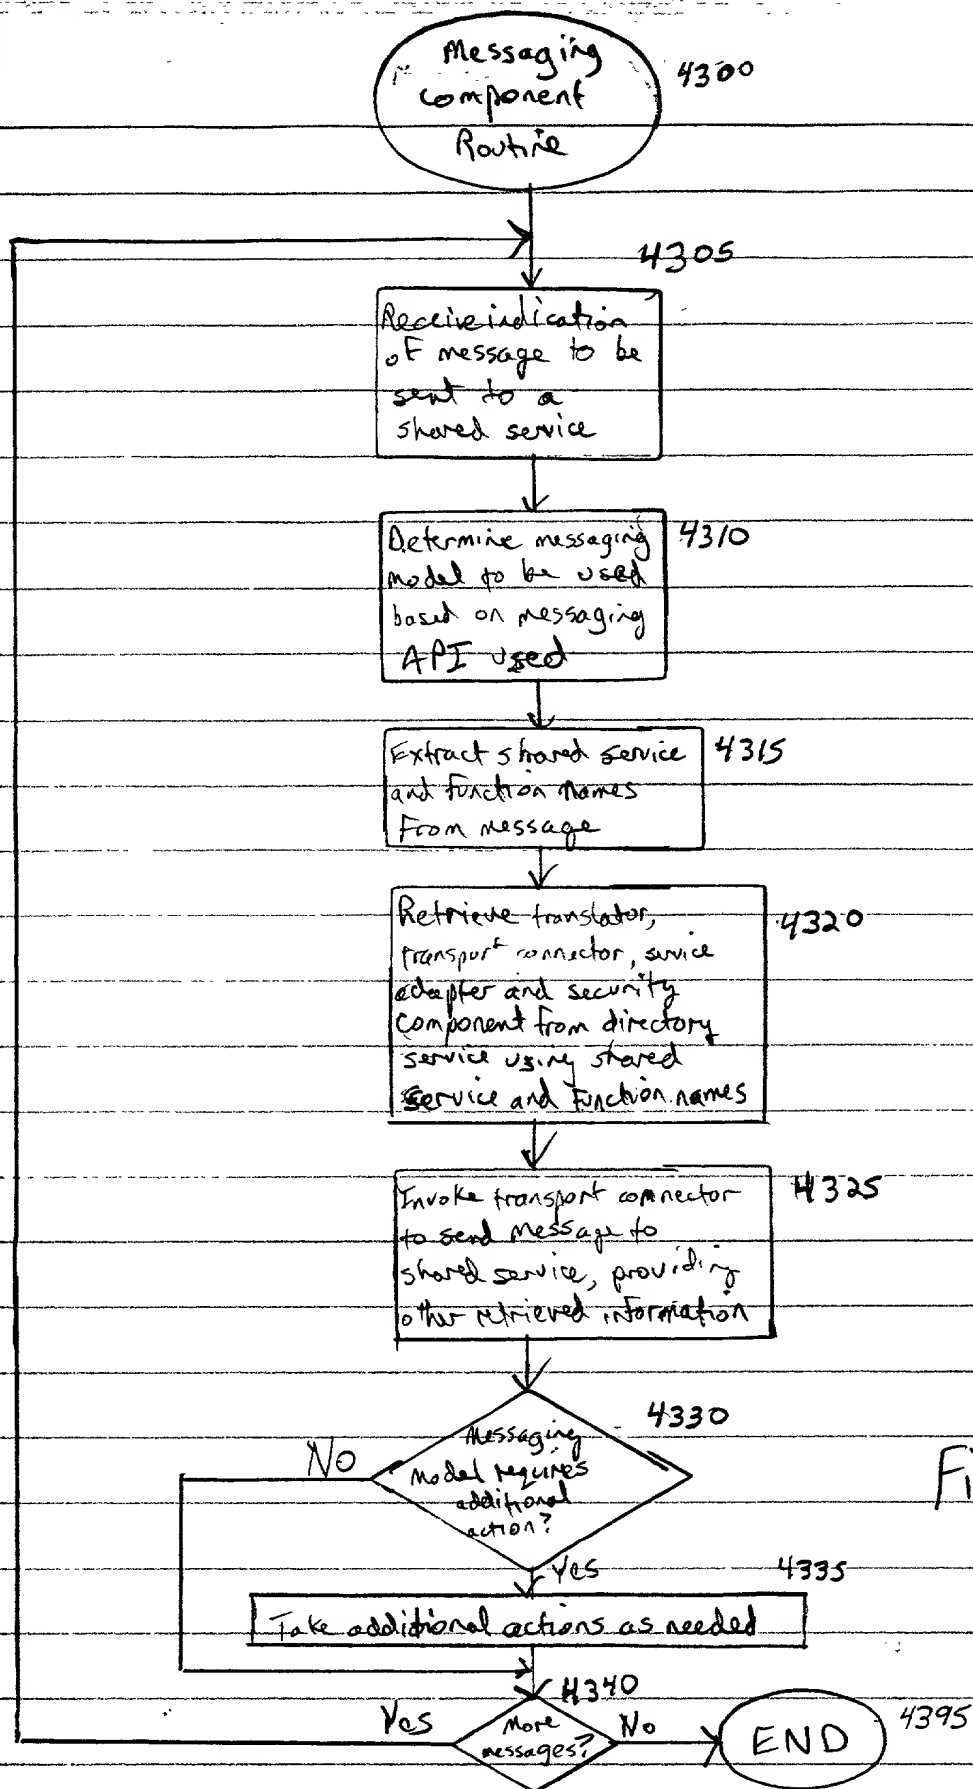 Messaging
Component
Routine
4300
4305
Receive indication
of message to be
sent to a
shared service
Determine messaging
model to be used
based on messaging
API used
4310
Extract shared service
and function names
from message
4315
Retrieve translator,
transport connector, service
adapter and security
component from directory
service using shared
service and function names
4320
Invoke transport connector
to send message to
shared service, providing
other retrieved information
4325
4330
Messaging
model requires
additional
action?
No
Fi
Yes
4335
Take additional actions as needed
4340
More
messages?
Yes
No
END
4395